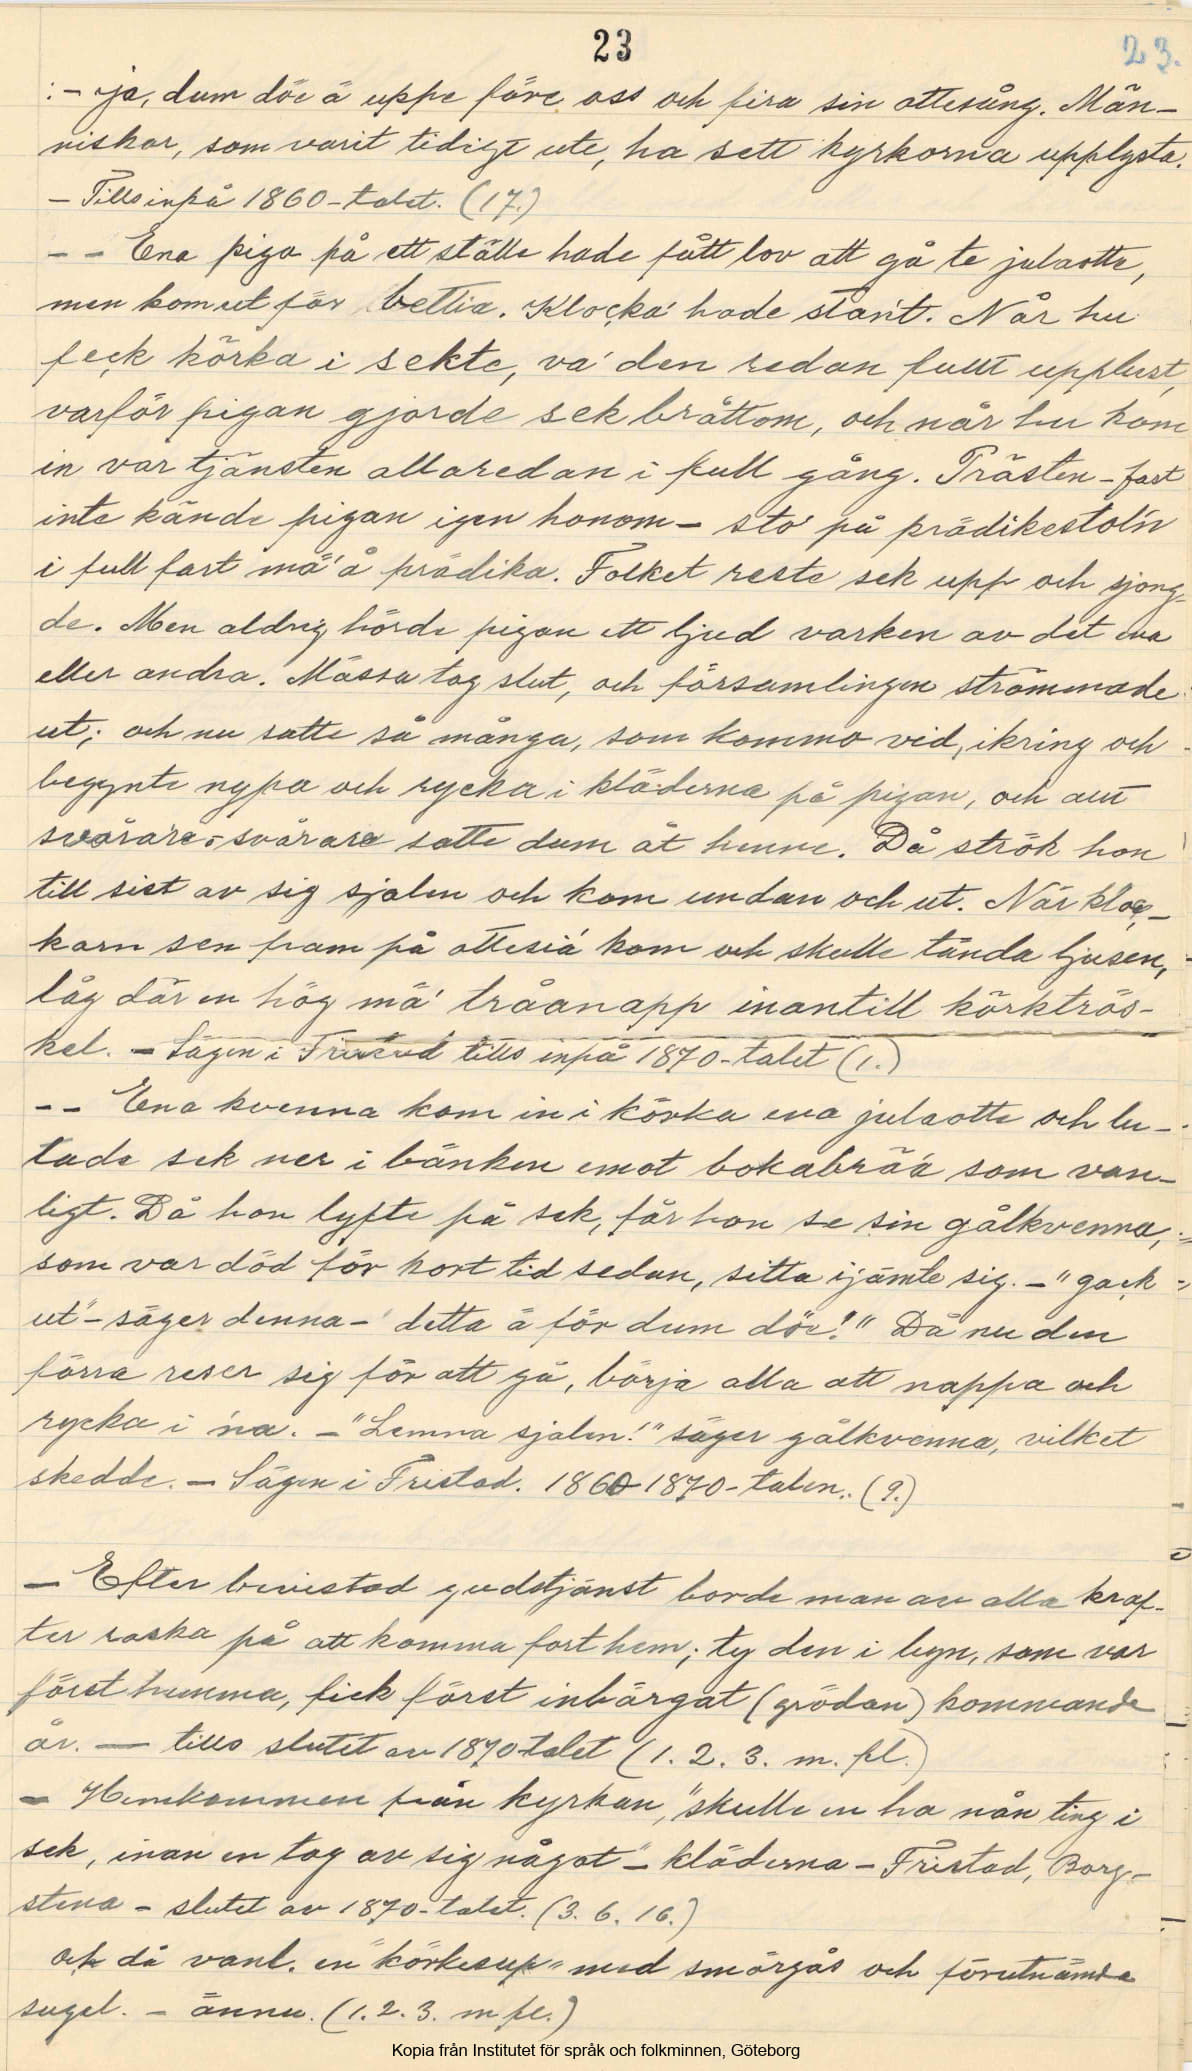 23
23.
:- ja, dum döe ä uppe före oss och fira sin ottesång. Män-
niskor, som varit tidigt ute, ha sett kyrkorna upplysta.
- Tills inpå 1860-talet. (17.)
- - Ena piga på ett ställe hade fått lov att gå te julaotta,
men kom ut för bettia. Klocka' hade stan't. Når hu
feck körka i sekte, va' den redan fullt upplust,
varför pigan gjorde sek bråttom, och når hu kom
in var tjänsten allaredan i full gång. Prästen - fast
inte kände pigan igen honom - sto' på prädikestol'n
i full fart mä' å prädika. Folket reste sek upp och sjong-
de. Men aldrig hörde pigan ett ljud varken av det ena
eller andra. Mässa tog slut, och församlingen strömmade
ut; och nu satte så många, som kommo vid, ikring och
begynte nypa och rycka i kläderna på pigan, och allt
svårare o svårare satte dum åt henne. Då strök hon
till sist av sig sjalen och kom undan och ut. När kloc-
karn sen fram på ottesia' kom och skulle tända ljusen,
låg där en hög mä' tråanapp inantill körktrös-
kel. - Sägen i Fristad tills inpå 1870-talet (1.)
- - Ena kvenna kom in i körka ena julaotte och lu-
tade sek ner i bänken emot bokabrä'a som van-
ligt. Då hon lyfte på sek, får hon se sin gålkvenna,
som var död för kort tid sedan, sitta ijämte sig. - "gack
ut" - säger denna - "detta ä för dum döe!" Då nu den
förra reser sig för att gå, börja alla att nappa och
rycka i 'na. - "Lemna sjalen!" säger gålkvenna, vilket
skedde. - Sägen i Fristad. 1860-1870-talen. (9.)
- Efter bevistad gudstjänst borde man av alla kraf-
ter raska på att komma fort hem; ty den i byn, som var
först hemma, fick först inbärgat (grödan) kommande
år. - tills slutet av 1870-talet (1. 2. 3. m. fl.)
- Hemkommen från kyrkan, "skulle en ha nån ting i
sek, inan en tog av sig något" - kläderna - Fristad, Borg-
stena - slutet av 1870-talet. (3. 6. 16.)
och då vanl. en "körkesup" med smörgås och förutnämda
sugel. - ännu. (1. 2. 3. m fl.)
Kopia från Institutet för språk och folkminnen, Göteborg